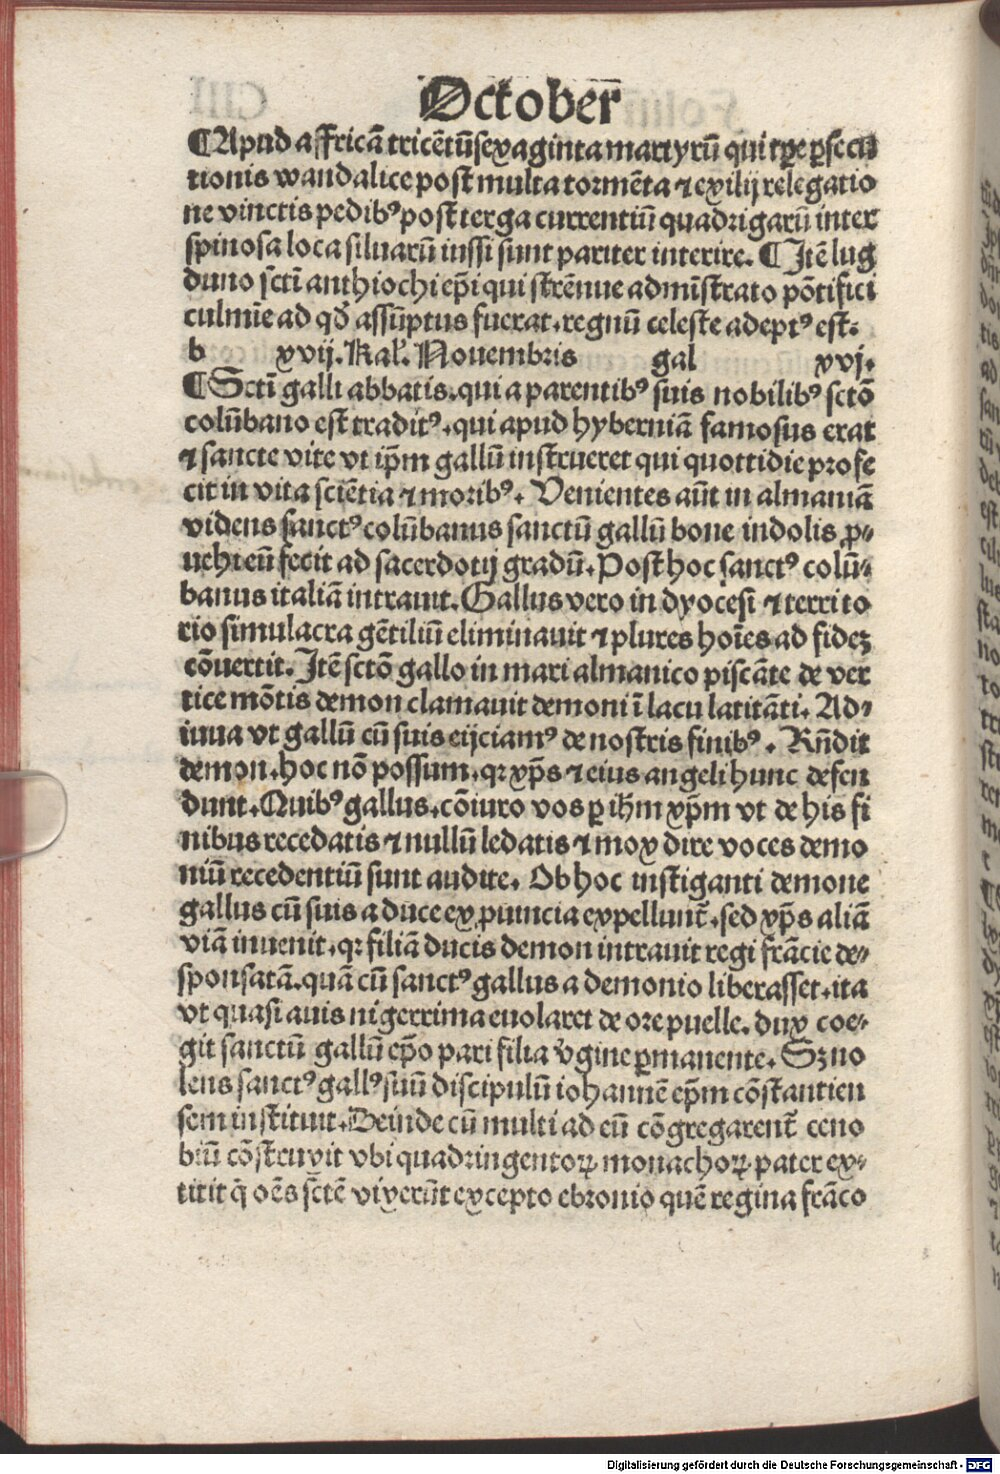 October̃
¶Apud affricã tricẽtũsexaginta martyrũ qui tꝑe ꝑsecu
tionis wandalice post multa tormẽta ⁊ exilij relegatio
ne vinctis pedibꝰ post terga currentiũ quadrigarũ inter
spinosa loca siluarũ iussi sunt pariter interire. ¶Jtẽ lug
duno sctĩ anthiochi ep̃i qui strẽnue admĩstrato põtifici
culmĩe ad qđ assũptus fuerat.regnũ celeste adeptꝰ est.
b xvij.Kal̃. Nouembris gal xvj.
¶Sctĩ galli abbatis.qui a parentibꝰ suis nobilibꝰ sctõ
colũbano est traditꝰ.qui apud hyberniã famosus erat
⁊ sancte vite vt ip̃m gallũ instrueret qui quottidie profe
cit in vita sciẽtia ⁊ moribꝰ. Venientes aũt in almaniã
videns sanctꝰ colũbanus sanctũ gallũ bone indolis ꝓ⸗
uehi eũ fecit ad sacerdotij gradũ. Post hoc sanctꝰ colũ⸗
banus italiã intrauit. Gallus vero in dyocesi ⁊ territo
rio simulacra gẽtiliũ eliminauit ⁊ plures hoĩes ad fidez
cõuertit. Jtẽ sctõ gallo in mari almanico piscãte de ver
tice mõtis demon clamauit demoni ĩ lacu latitãti. Ad⸗
iuua vt gallũ cũ suis eijciamꝰ de nostris finibꝰ. Rñdit
demon.hoc nõ possum.qꝛ xp̃s ⁊ eius angeli hunc defen
dunt.Quibꝰ gallus.cõiuro vos ꝑ ih̃m xp̃m vt de his fi
nibus recedatis ⁊ nullũ ledatis ⁊ mox dire voces demo
niũ recedentiũ sunt audite. Ob hoc instiganti demone
gallus cũ suis a duce ex ꝓuincia expellunt̃.sed xp̃s aliã
viã inuenit.qꝛ filiã ducis demon intrauit regi frãcie de⸗
sponsatã.quã cũ sanctꝰ gallus a demonio liberasset.ita
vt quasi auis nigerrima euolaret de ore puelle. dux coe⸗
git sanctũ gallũ ep̃o pari filia v̾gine ꝑmanente. Sz no
lens sanctꝰ gallꝰ suũ discipulũ iohannẽ ep̃m cõstantien
sem instituit.Deinde cũ multi ad eũ cõgregarent̃ ceno
biũ cõstruxit vbi quadringentoꝝ monachoꝝ pater ex⸗
titit q̃ oẽs sctẽ vixerũt excepto ebronio quẽ regina frãco
Digitalisierung gefördert durch die Deutsche Forschungsgemeinschaft - DFG